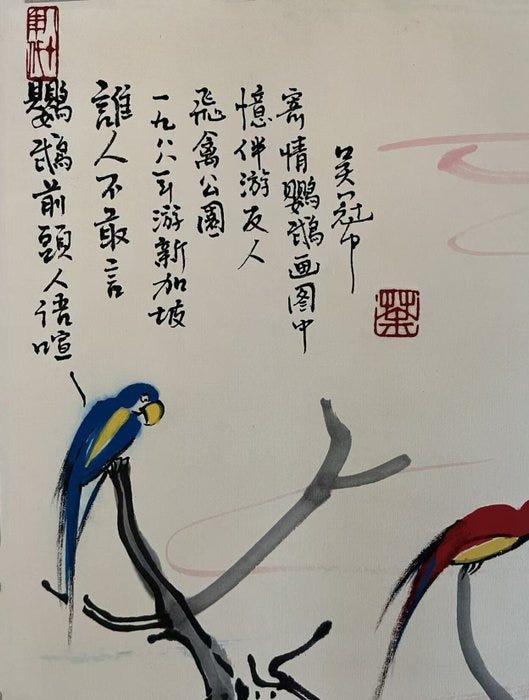 鸚鵡前頭人语喧
誰人不敢言
一九八八年游新加坡
飛禽公園
憶伴游友人
寄情鸚鵡画图中
吴冠中